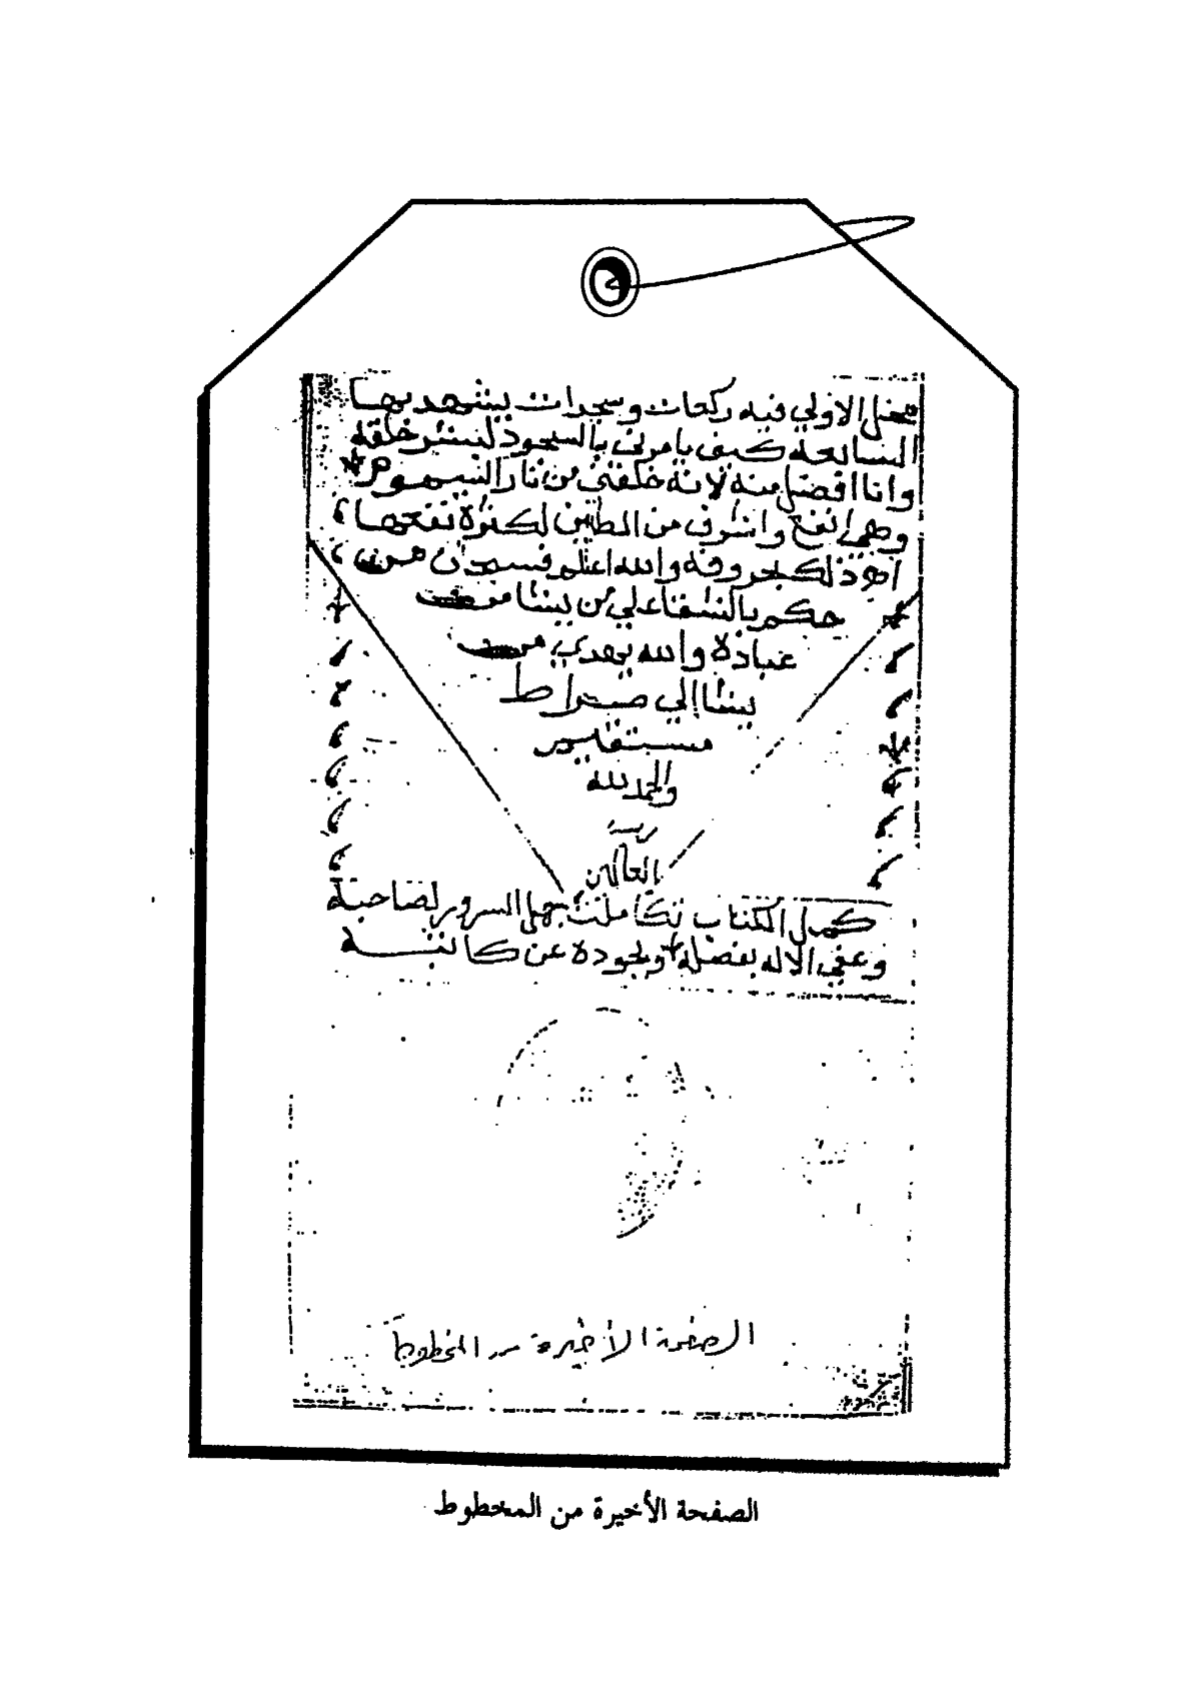 الاولي فيه ركعات وسجدات يشهد بها
كيف يامرني بالسجود لبشر خلقه
وانا افضل منه لانه خلقني من نار السموم
وهي انفع واشرف من الطين لكثرة نفعها
ذلك بحروفه والله اعلم فسبحان من
حكم بالشقا علي من يشا من
عباده والله يهدي من
يشا الي صراط
مستقيم
والحمد لله
رب
العالمين
كمل الكتاب تكاملت السرور لصاحبه
وعفي الاله بفضله وبجوده عن كاتبه
الصفحة الأخيرة من المخطوط
الصفحة الأخيرة من المخطوط